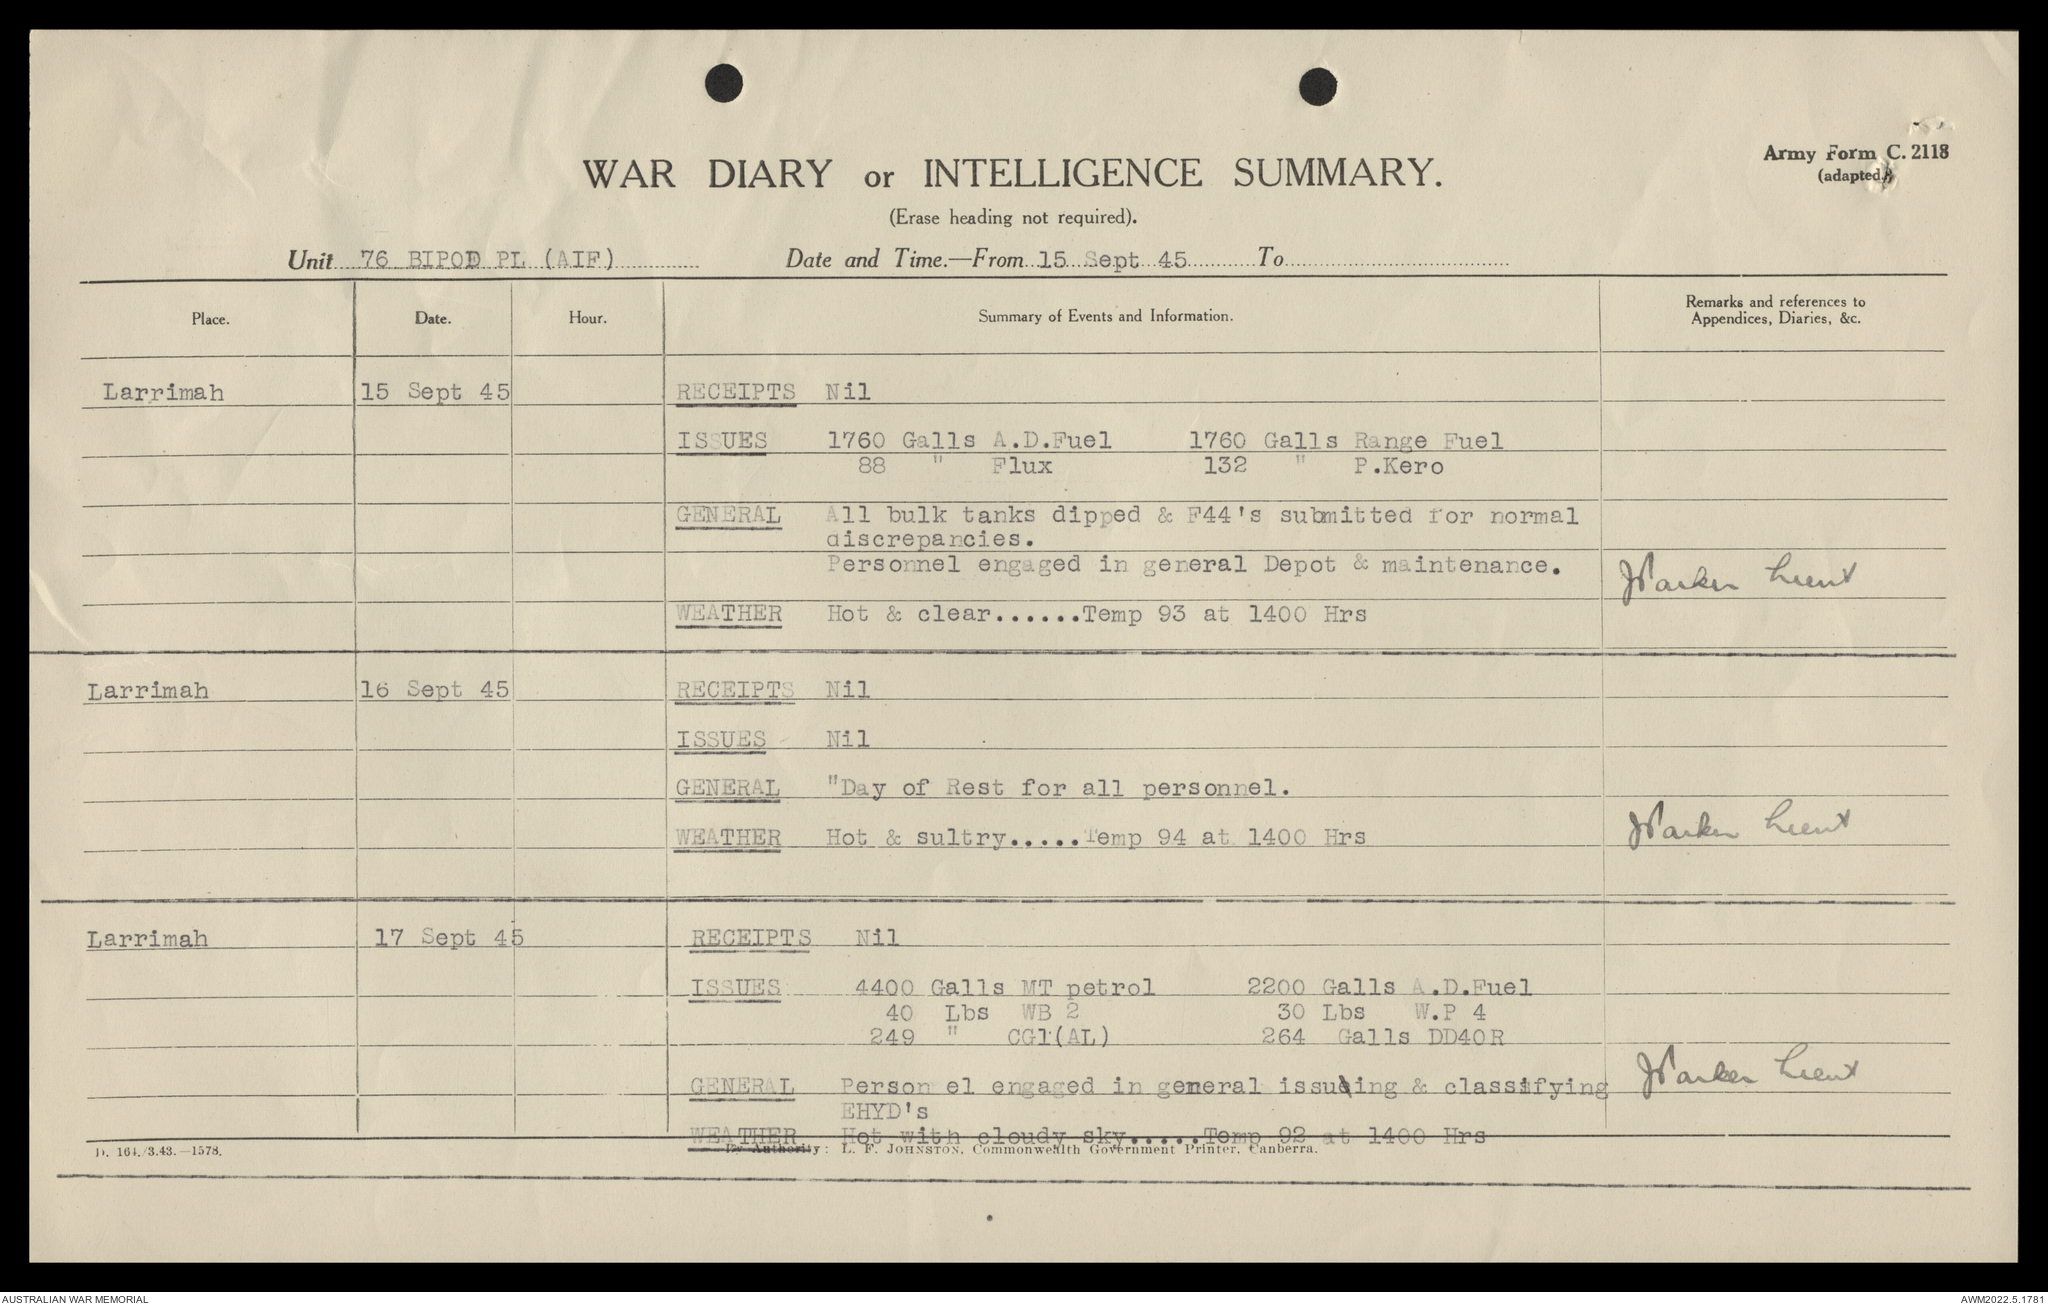 Army Form C. 2118
(adapted.)
WAR DIARY or INTELLIGENCE SUMMARY.
(Erase heading not required).
Unit 76 BIPOD PL (AIF) Date and Time.—From 15 Sept 45 To
Place. Date. Hour. Summary of Events and Information. Remarks and references to Appendices, Diaries, &c.
Larrimah 15 Sept 45 RECEIPTS Nil
ISSUES 1760 Galls A.D.Fuel 1760 Galls Range Fuel
88 " Flux 132 " P.Kero
GENERAL All bulk tanks dipped & F44's submitted for normal
discrepancies.
Personnel engaged in general Depot & maintenance.
Lieut
WEATHER Hot & clear......Temp 93 at 1400 Hrs
Larrimah 16 Sept 45 RECEIPTS Nil
ISSUES Nil
GENERAL "Day of Rest for all personnel.
WEATHER Hot & sultry.....Temp 94 at 1400 Hrs Lieut
Larrimah 17 Sept 45 RECEIPTS Nil
ISSUES 4400 Galls MT petrol 2200 Galls A.D.Fuel
40 Lbs WB 2 30 Lbs W.P 4
249 " CG1(AL) 264 Galls DD40R
GENERAL Person el engaged in general issuing & classifying Lieut
EHYD's
WEATHER Hot with cloudy sky.....Temp 92 at 1400 Hrs
D. 164./3.43.—1578. By Authority: L. F. JOHNSTON, Commonwealth Government Printer, Canberra.
AUSTRALIAN WAR MEMORIAL AWM2022.5.1781